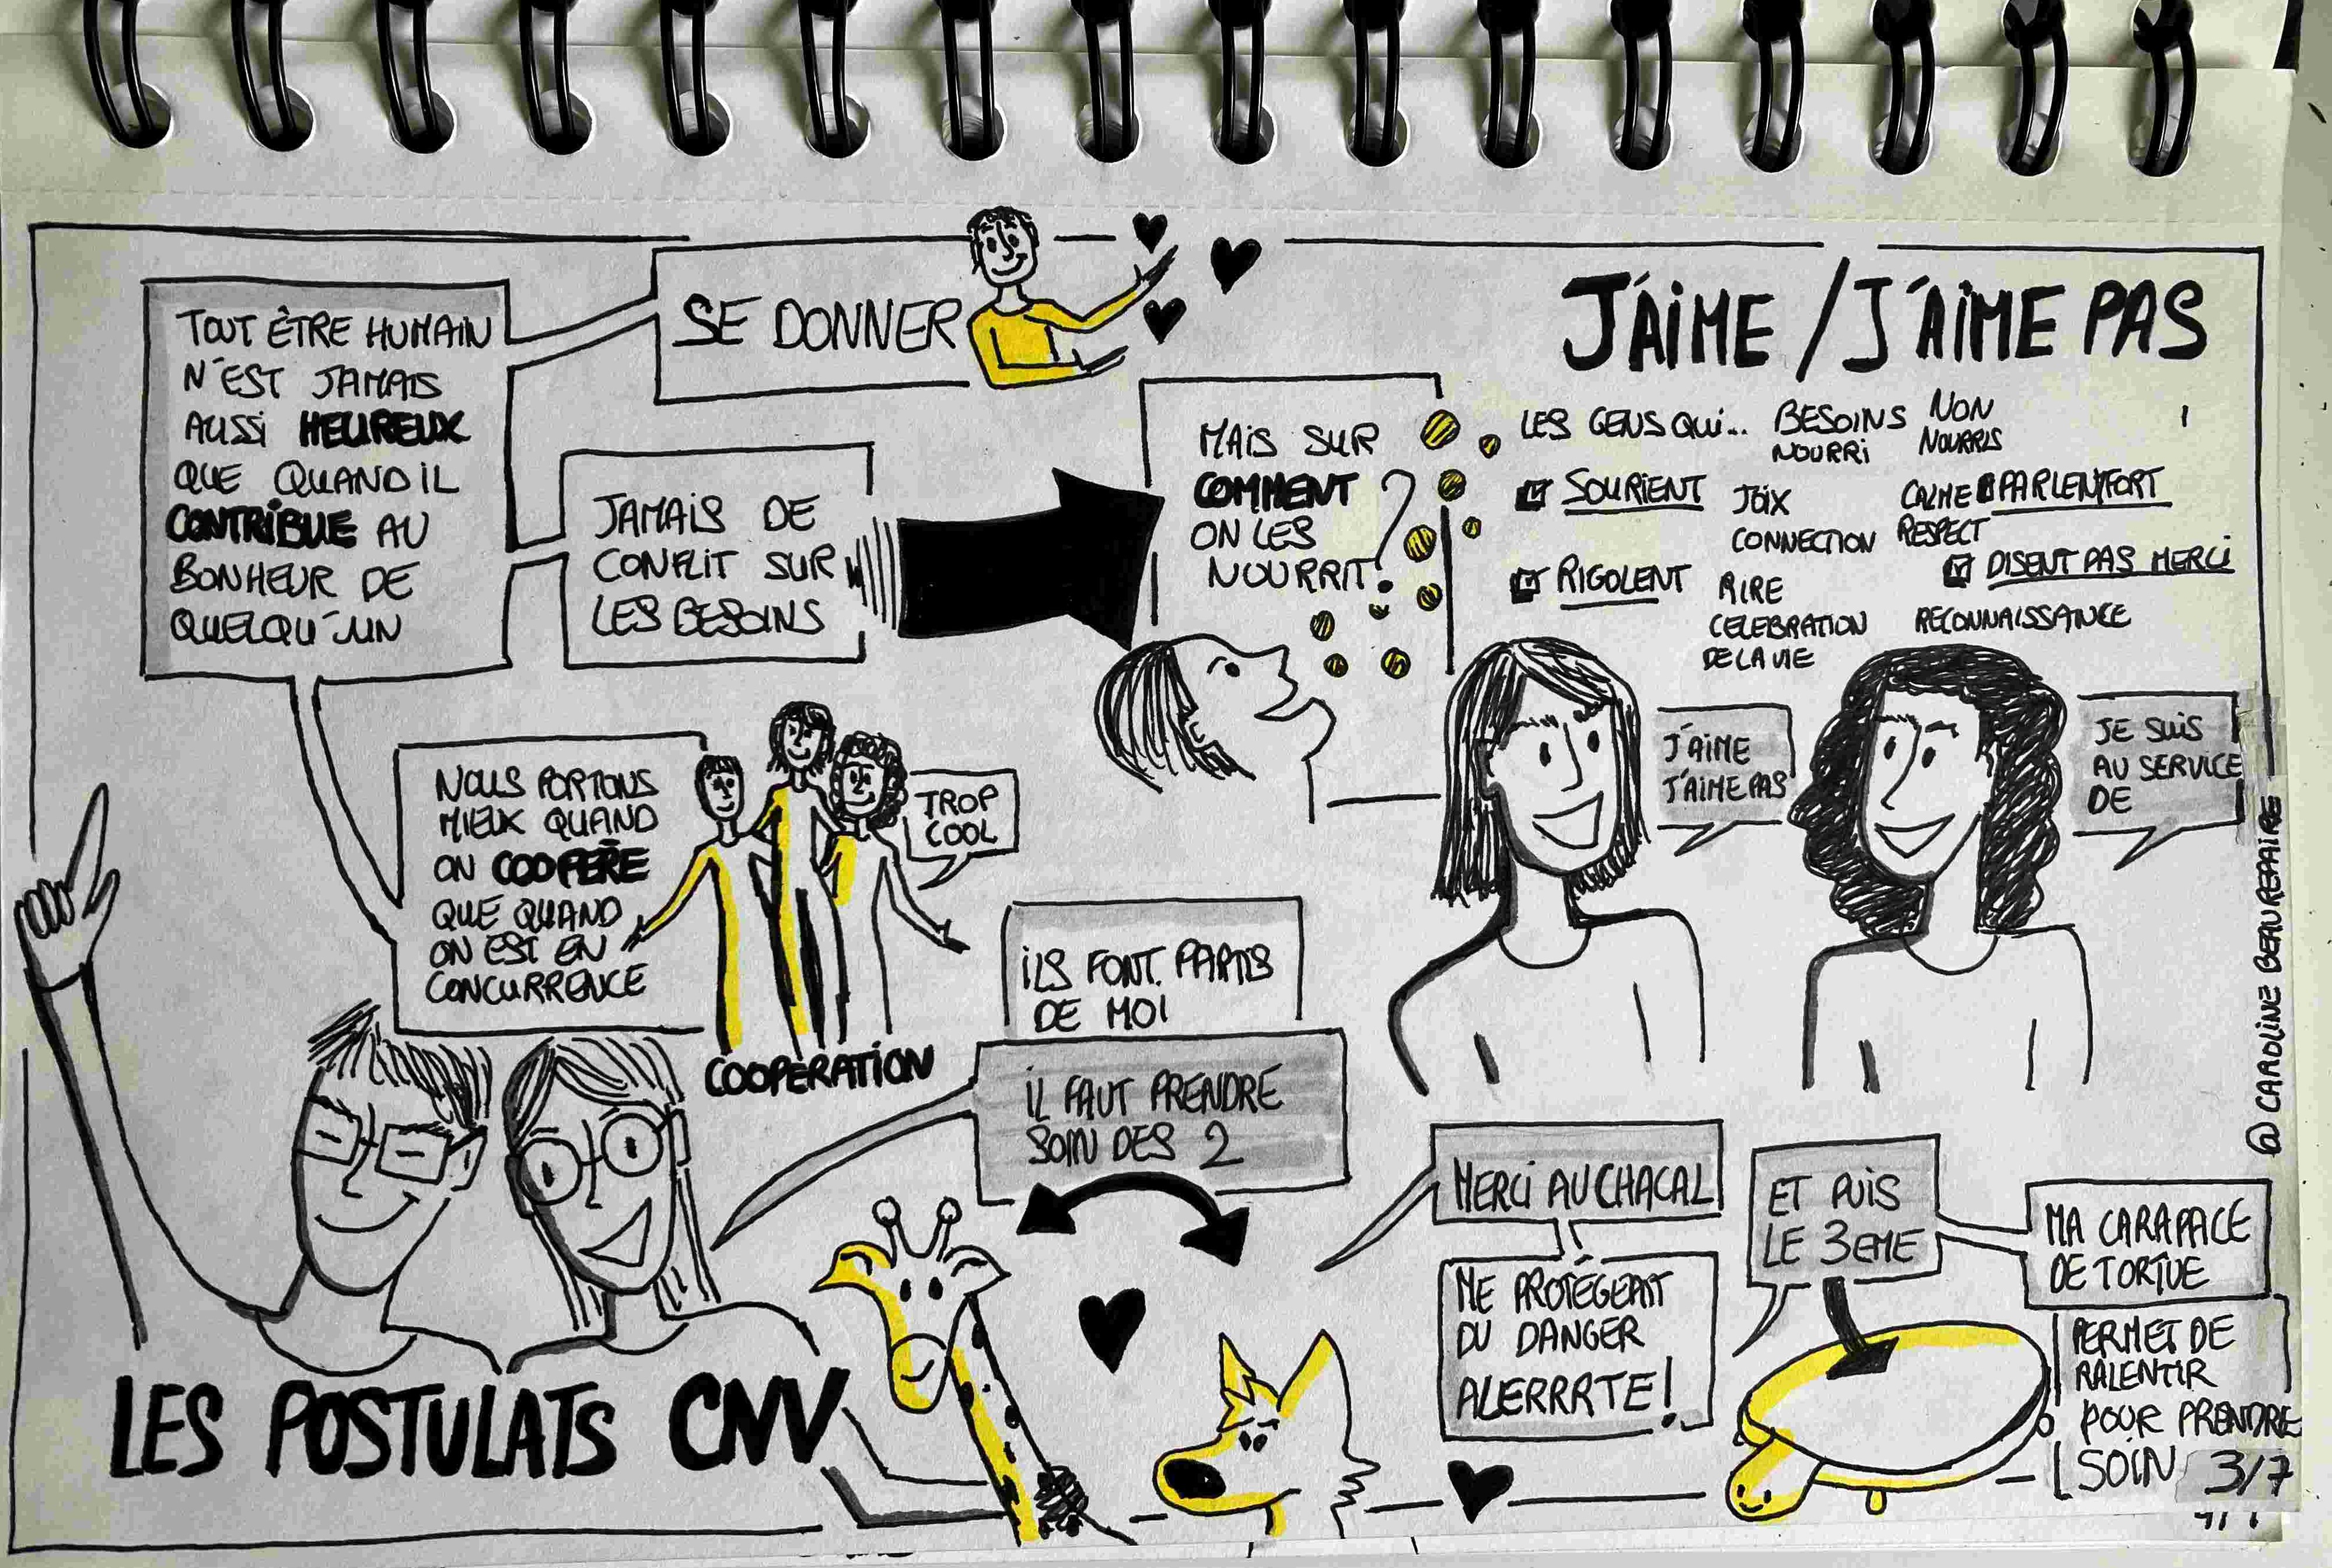 TOUT ÊTRE HUMAIN
N'EST JAMAIS
AUSSI HEUREUX
QUE QUAND IL
CONTRIBUE AU
BONHEUR DE
QUELQU'UN
SE DONNER
JAMAIS DE
CONFLIT SUR
LES BESOINS
MAIS SUR
COMMENT
ON LES
NOURRIT ?
NOUS PORTONS
MIEUX QUAND
ON COOPÈRE
QUE QUAND
ON EST EN
CONCURRENCE
TROP
COOL
COOPERATION
ILS FONT PARTIS
DE MOI
IL FAUT PRENDRE
SOIN DES 2
LES POSTULATS CNV
J'AIME / J'AIME PAS
LES GENS QUI... BESOINS NOURRI NON NOURRIS
SOURIENT JOIX CONNECTION
CALME RESPECT PARLENT FORT
RIGOLENT RIRE CELEBRATION DE LA VIE
DISENT PAS MERCI
RECONNAISSANCE
J'AIME
J'AIME PAS
JE SUIS
AU SERVICE
DE
@ CAROLINE BEAUREPAIRE
MERCI AU CHACAL
ME PROTÉGEANT
DU DANGER
ALERRRTE!
ET PUIS
LE 3EME
MA CARAPACE
DE TORTUE
PERMET DE
RALENTIR
POUR PRENDRE
SOIN
3/7